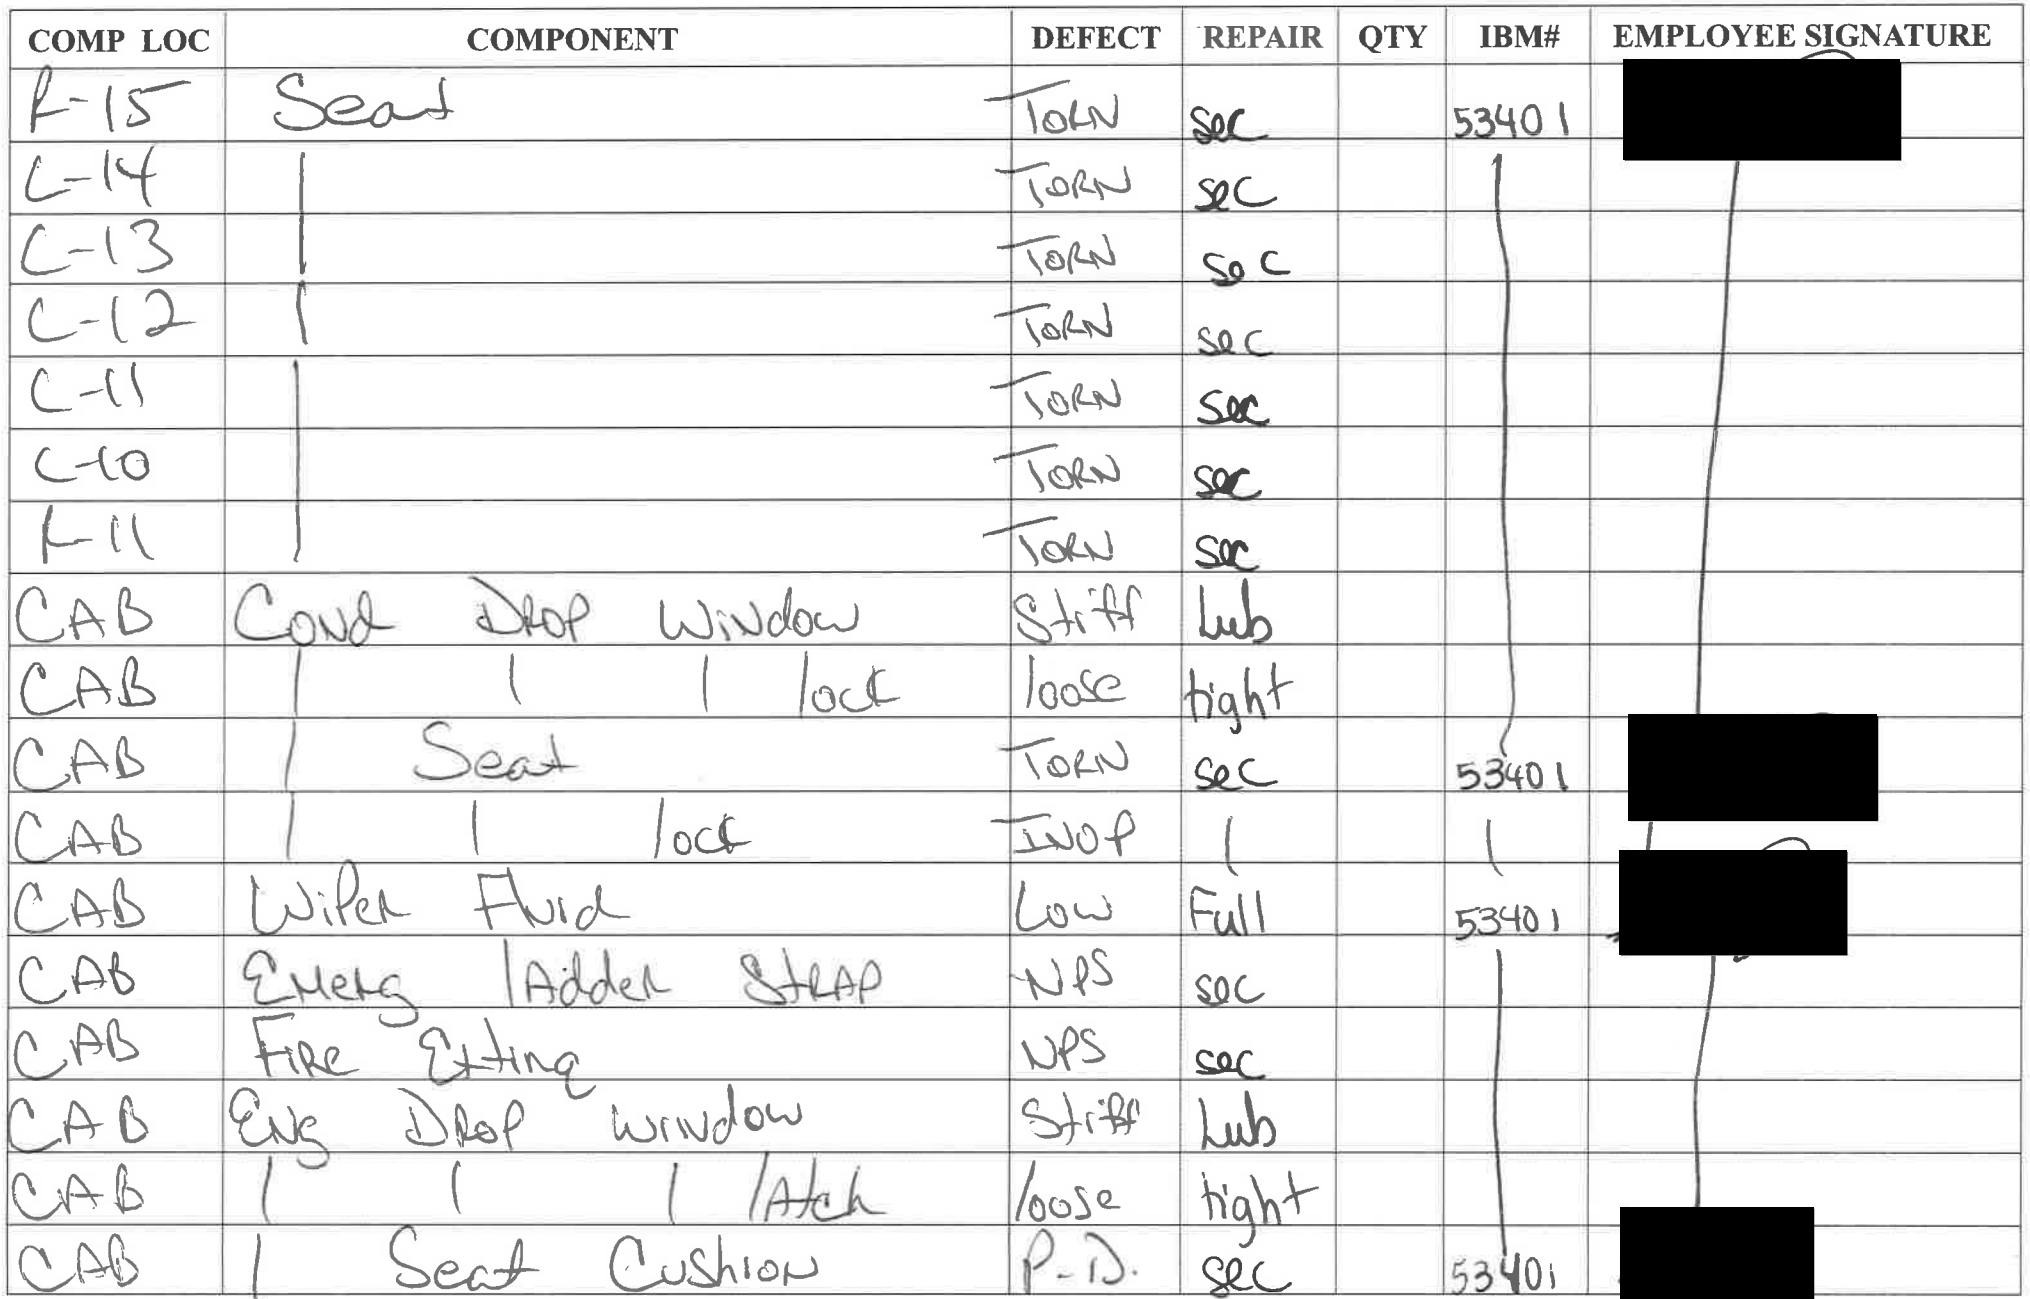 COMP LOC COMPONENT DEFECT REPAIR QTY IBM# EMPLOYEE SIGNATURE
R-15 Seat TORN sec 53401
C-14 | TORN sec |
C-13 | TORN sec |
C-12 | TORN sec |
C-11 | TORN sec |
C-10 | TORN sec |
R-11 | TORN sec |
CAB Cond DROP WINdow Stiff Lub |
CAB | | | lock loose tight |
CAB | Seat TORN sec 53401
CAB | | lock INOP | |
CAB WiPeR Fluid Low Full 53401
CAB EMeRg lAddeR STRAP NPS sec |
CAB FIRe Exting NPS sec |
CAB ENg DROP WINdow Stiff Lub |
CAB | | | lAtch loose tight |
CAB | Seat CushioN P-D. sec 53401